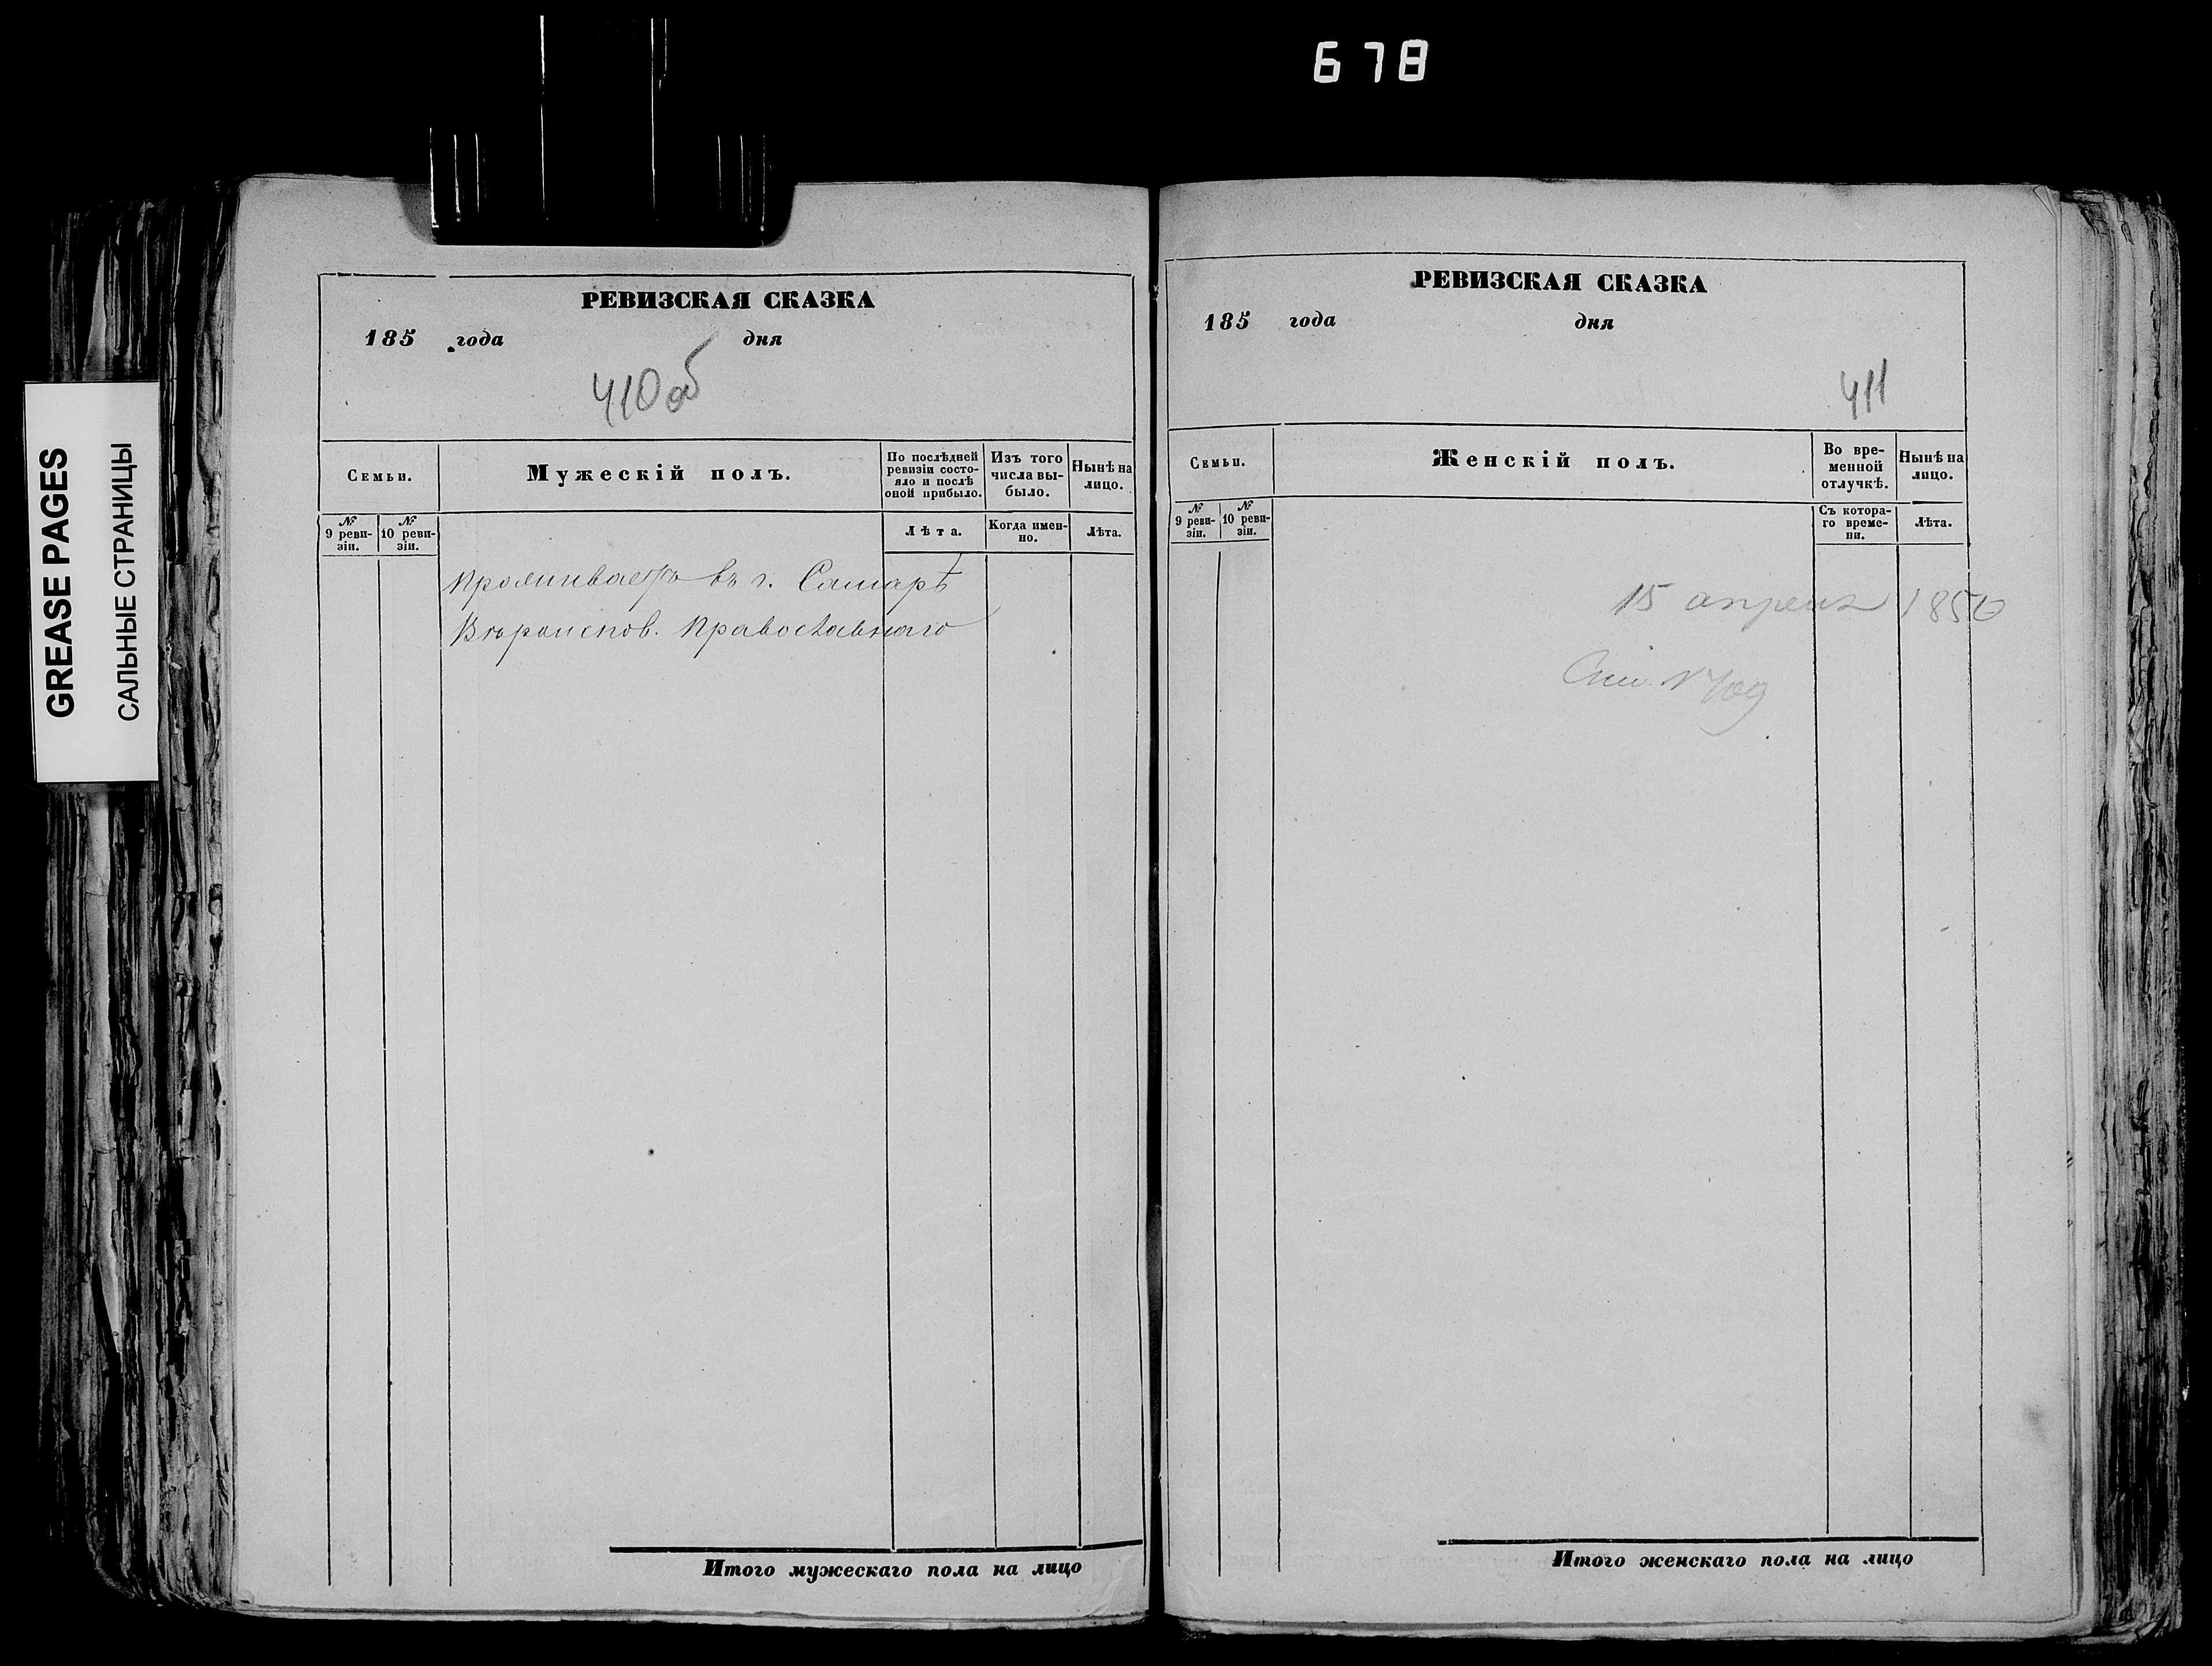 678
GREASE PAGES
САЛЬНЫЕ СТРАНИЦЫ
РЕВИЗСКАЯ СКАЗКА
185 года дня
410 об
Семьи.
Мужескій полъ.
По послѣдней ревизіи состо-
яло и послѣ оной прибыло.
Изъ того числа вы-
было.
Нынѣ на лицо.
№ 9 реви-
зіи.
№ 10 реви-
зіи.
Лѣта.
Когда имен-
но.
Лѣта.
Проживаетъ въ г. Самарѣ
Вѣроиспов. Православнаго
Итого мужескаго пола на лицо
РЕВИЗСКАЯ СКАЗКА
185 года дня
411
Семьи.
Женскій полъ.
Во вре-
менной
отлучкѣ.
Нынѣ на
лицо.
№ 9 реви-
зіи.
№ 10 реви-
зіи.
Съ котора-
го време-
ни.
Лѣта.
15 апреля 1850
№ 709
Итого женскаго пола на лицо